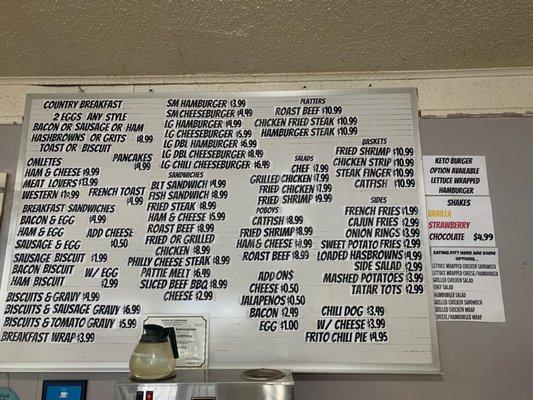 COUNTRY BREAKFAST
2 EGGS ANY STYLE
BACON OR SAUSAGE OR HAM
HASHBROWNS OR GRITS $8.99
TOAST OR BISCUIT
PANCAKES $4.99
OMLETES
HAM & CHEESE $9.99
MEAT LOVERS $13.99
WESTERN $12.99
FRENCH TOAST $4.99
BREAKFAST SANDWICHES
BACON & EGG $4.99
HAM & EGG
ADD CHEESE $0.50
SAUSAGE & EGG
SAUSAGE BISCUIT $1.99
BACON BISCUIT W/ EGG
HAM BISCUIT $2.99
BISCUITS & GRAVY $4.99
BISCUITS & SAUSAGE GRAVY $6.99
BISCUITS & TOMATO GRAVY $5.99
BREAKFAST WRAP $3.99
SM HAMBURGER $3.99
SM CHEEBURGER $4.99
LG HAMBURGER $4.99
LG CHEEBURGER $5.99
LG DBL HAMBURGER $6.99
LG DBL CHEEBURGER $8.49
LG CHILI CHEEBURGER $6.49
SANDWICHES
BLT SANDWICH $4.99
FISH SANDWICH $8.99
FRIED STEAK $8.99
HAM & CHEESE $6.99
ROAST BEEF $8.99
FRIED OR GRILLED
CHICKEN $8.99
PHILLY CHEESE STEAK $8.99
PATTIE MELT $6.49
SLICED BEEF BBQ $8.99
CHEESE $2.99
PLATTERS
ROAST BEEF $10.99
CHICKEN FRIED STEAK $10.99
HAMBURGER STEAK $10.99
SALADS
CHEF $7.99
GRILLED CHICKEN $7.99
FRIED CHICKEN $7.99
FRIED SHRIMP $8.99
POBOYS
CATFISH $8.99
FRIED SHRIMP $8.99
HAM & CHEESE $8.99
ROAST BEEF $8.99
ADD ONS
CHEESE $0.50
JALAPENOS $0.50
BACON $2.49
EGG $1.00
BASKETS
FRIED SHRIMP $10.99
CHICKEN STRIP $10.99
STEAK FINGER $10.99
CATFISH $10.99
SIDES
FRENCH FRIES $1.99
CAJUN FRIES $2.99
ONION RINGS $3.99
SWEET POTATO FRIES $2.99
LOADED HASBROWNS $4.99
SIDE SALAD $2.99
MASHED POTATOES $3.99
TATAR TOTS $2.99
CHILI DOG $3.49
W/ CHEESE $3.99
FRITO CHILI PIE $4.95
KETO BURGER
OPTION AVAILABLE
LETTUCE WRAPPED
HAMBURGER
SHAKES
VANILLA
STRAWBERRY
CHOCOLATE $4.99
EATING FIT? HERE ARE SOME
OPTIONS...
LETTUCE WRAPPED CHICKEN SANDWICH
LETTUCE WRAPPED CHEESE/HAMBURGER
GRILLED CHICKEN SALAD
CHEF SALAD
HAMBURGER SALAD
GRILLED CHICKEN SANDWICH
GRILLED CHICKEN WRAP
CHEESE/HAMBURGER WRAP